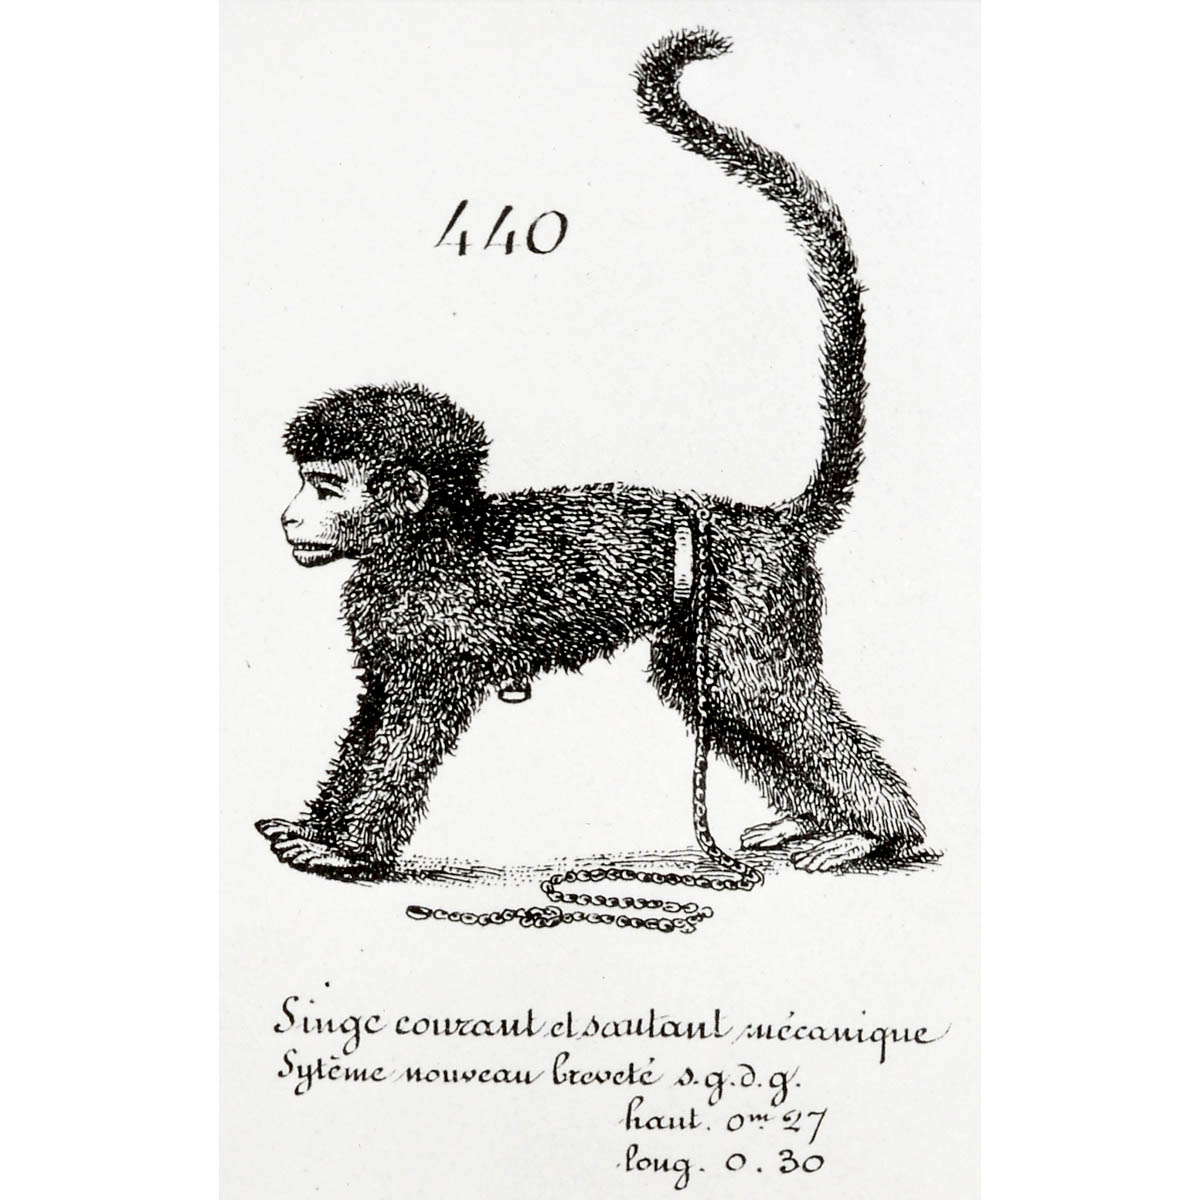 440
Singe courant et sautant mécanique
Sytème nouveau breveté s.g.d.g.
haut. 0m. 27
long. 0. 30